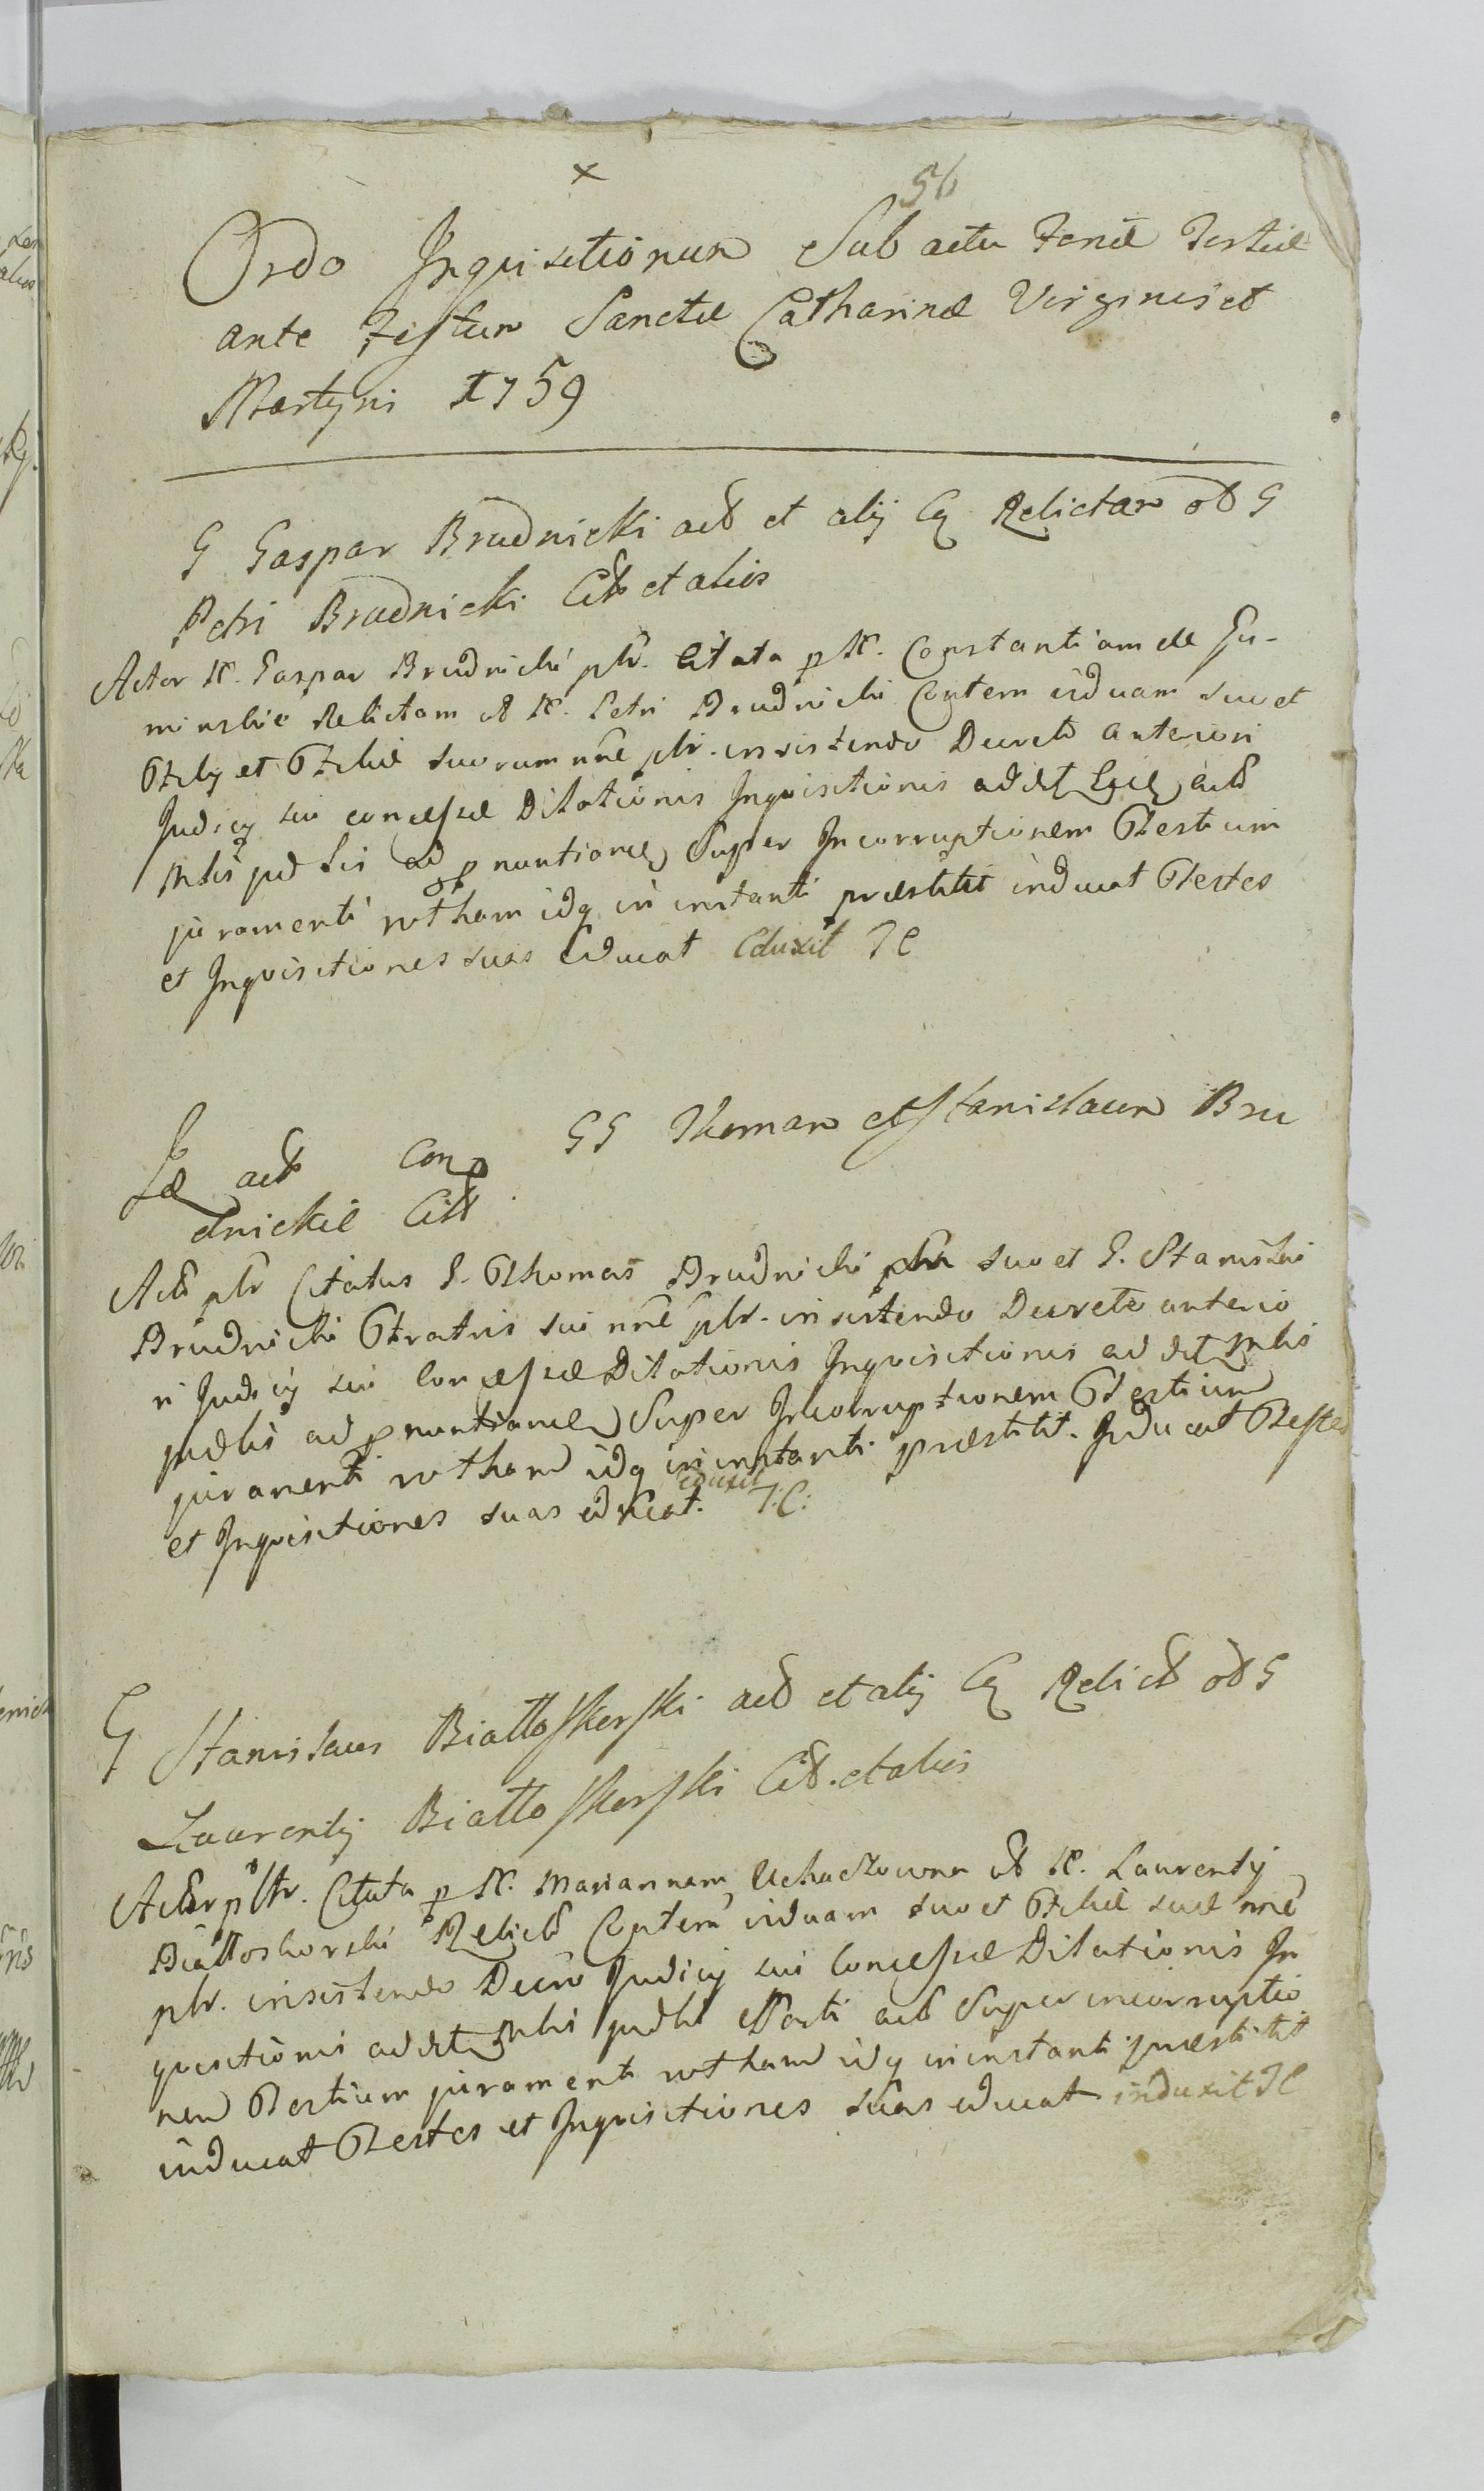 x
56
Ordo Inquisitionum Sub actu Feriæ Tertiæ
ante Festum Sanctæ Catharinæ Virginis et
Martyris 1759
G Gaspar Brudnicki act et alij Cq Relictam ol G
Petri Brudnicki Citt et alios
Actor N. Gaspar Brudnicki ptr. Citata p N. Constantiam de Gu-
minskie Relictam ol N. Petri Brudnicki Contem viduam suo et
Filij et Filiæ suorum nñe ptr. insistendo Decreto anteriori
Judicij sui concessæ Dilationis Inquisitionis addit act
ad pnuntiand Super Incorruptionem Testium
juramenti rotham idq in instanti præstitit inducat Testes
et Inquisitiones suas educat eduxit JC
Id act Con GG Thomam et Stanislaum Bru
dnickie Citt
Act ptr Citatus G. Thomas Brudnicki ptr suo et G. Stanislai
Brudnicki Fratris sui nñe ptr. insistendo Decreto anterio
ri Judicij sui Concessæ Dilationis Inquisitionis ad
ad pnuntiand Super Incorruptionem Testium
juramenti rotham idq in instanti præstitit. Inducat Testes
et Inquisitiones suas educat. eduxit J:C:
G Stanislaus Białłoskorski act et alij Cq Relict ol G
Laurentij Białłoskorski Citt. et alios
Actor ptr. Citata p N. Mariannam Uchaczowna ol N. Laurentij
Białłoskorski Relict Contem viduam suo et Filiæ suæ nñe
ptr. insistendo Decreto Judicij sui Concessæ Dilationis In
quisitionis Parti act Super incorruptio
nem Testium juramenti rotham idq in instanti præstitit
inducat Testes et Inquisitiones suas educat induxit JC